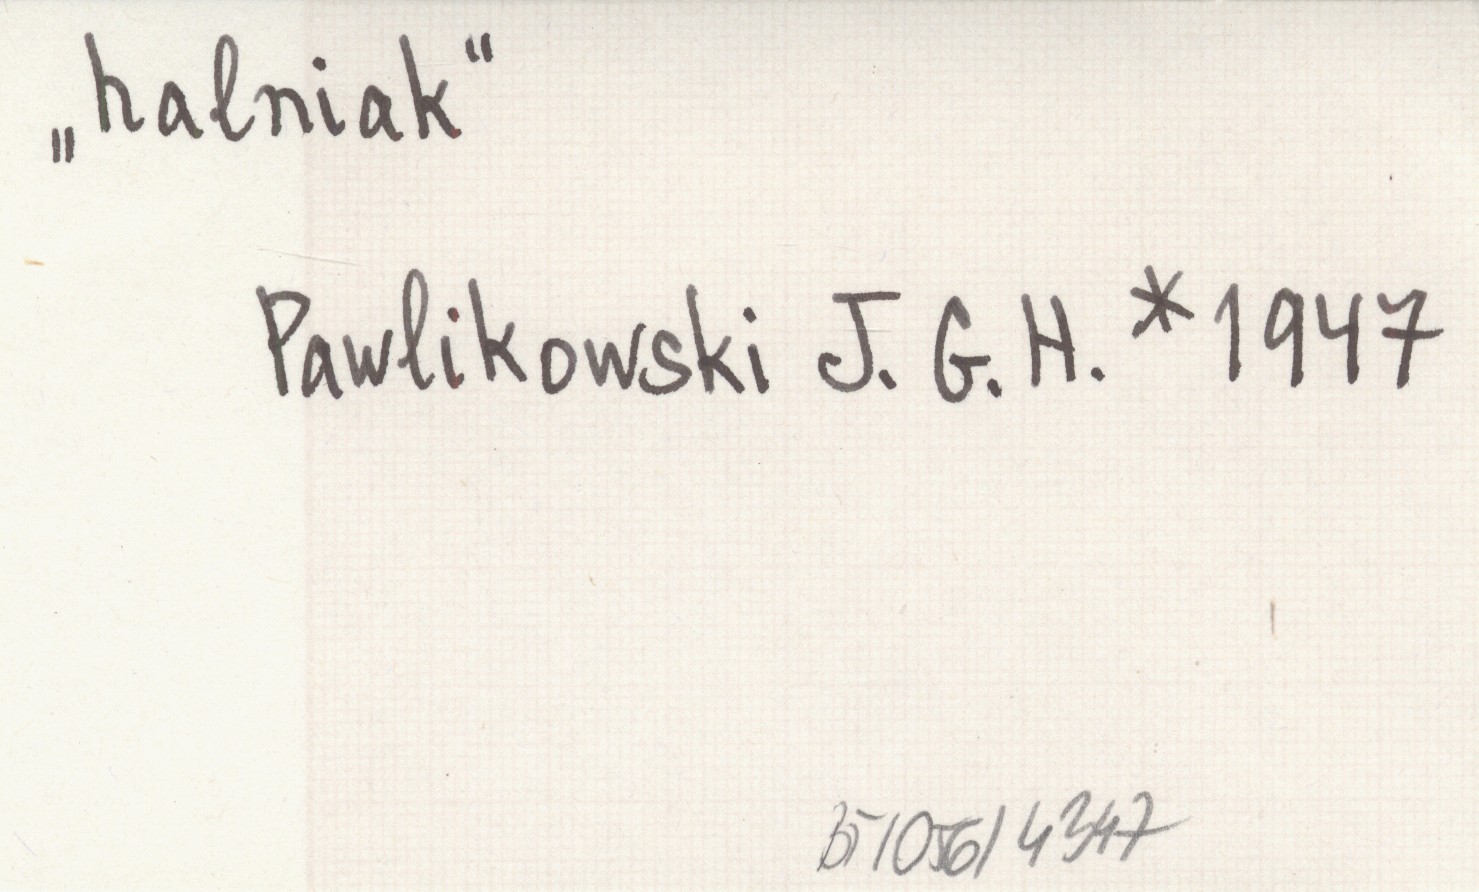 „halniak“
Pawlikowski J. G. H. * 1947
BT/056/4347